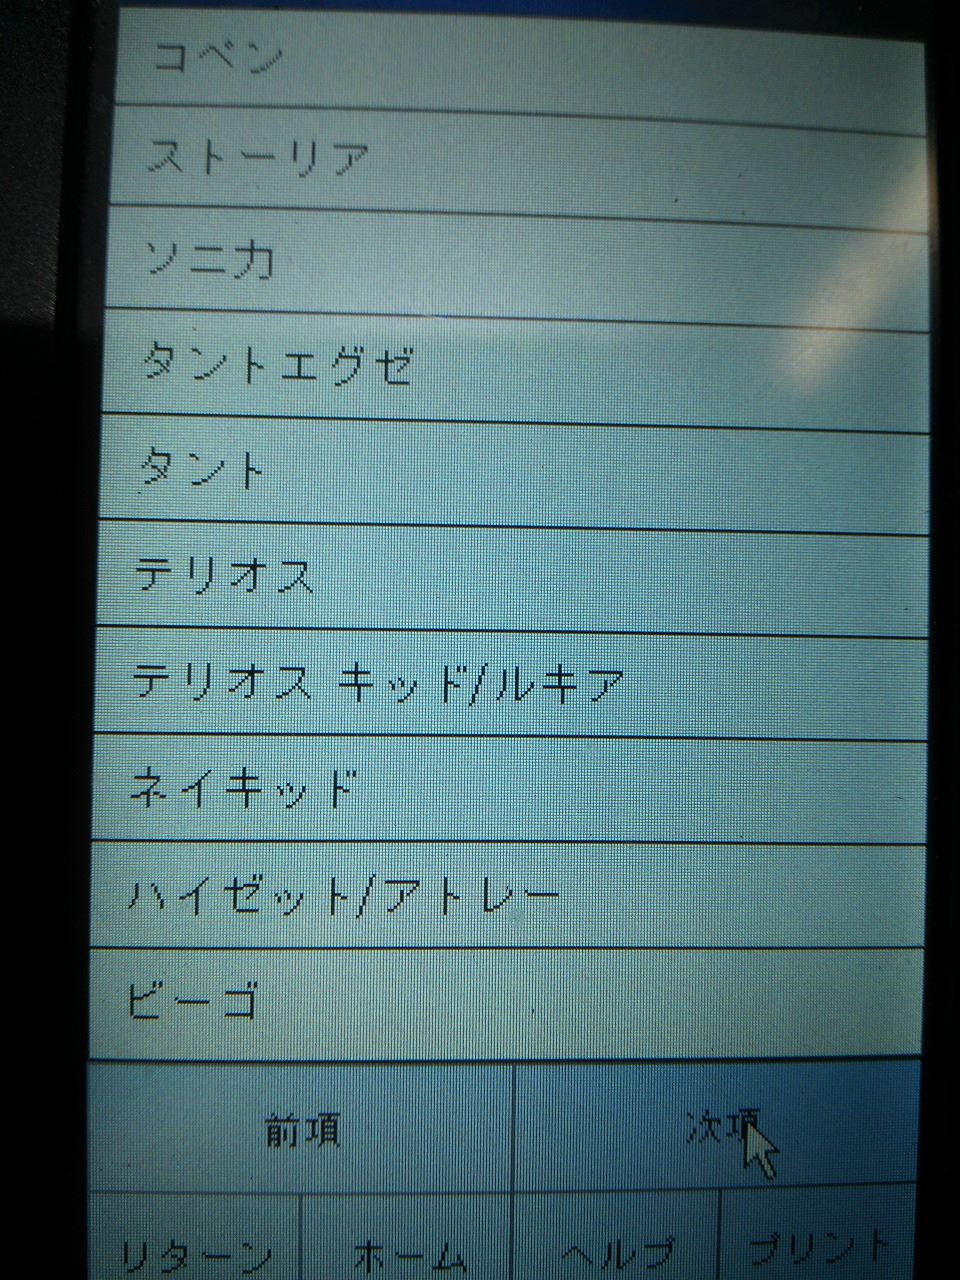 コペン
ストーリア
ソニカ
タントエグゼ
タント
テリオス
テリオス キッド/ルキア
ネイキッド
ハイゼット/アトレー
ビーゴ
前項 次項
リターン ホーム ヘルプ プリント